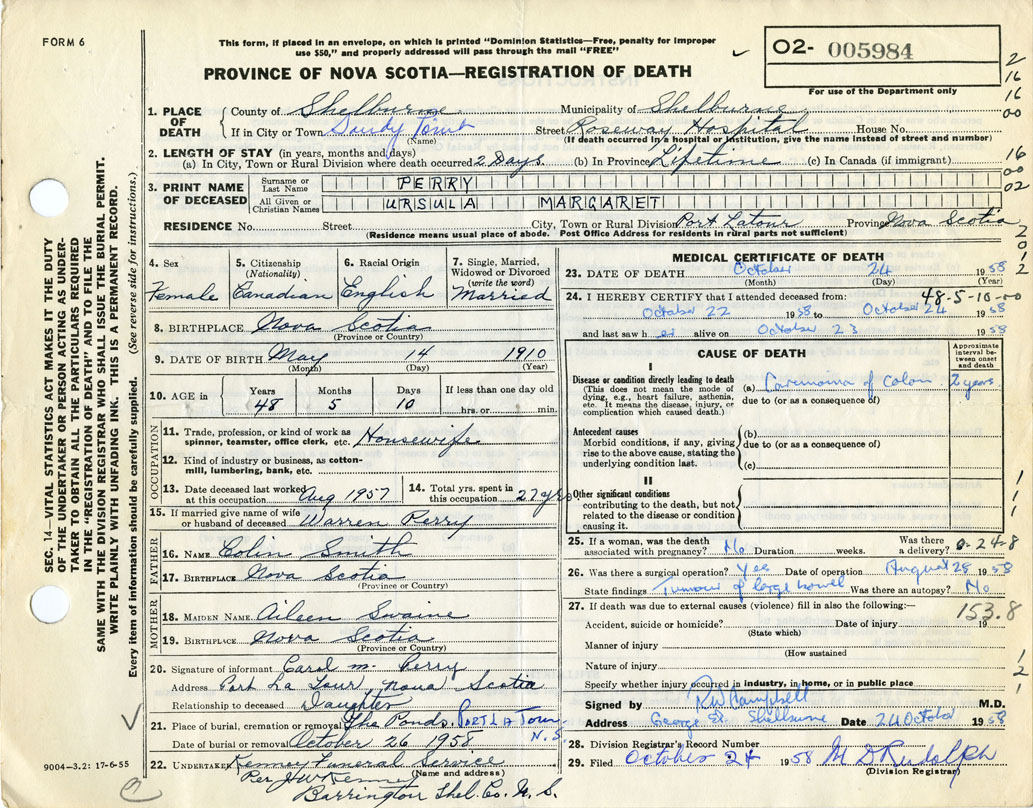 FORM 6
This form, if placed in an envelope, on which is printed "Dominion Statistics—Free, penalty for improper
use $50," and properly addressed will pass through the mail "FREE"
PROVINCE OF NOVA SCOTIA—REGISTRATION OF DEATH
O2- 005984
For use of the Department only
2
16
16
00
16
00
02
2
0
1
2
1. PLACE OF DEATH
County of Shelburne Municipality of Shelburne
If in City or Town Sandy Point Street Roseway Hospital House No.
(Name) (If death occurred in a hospital or institution, give the name instead of street and number)
2. LENGTH OF STAY (in years, months and days)
(a) In City, Town or Rural Division where death occurred 2 Days (b) In Province Lifetime (c) In Canada (if immigrant)
3. PRINT NAME OF DECEASED
Surname or Last Name PERRY
All Given or Christian Names URSULA MARGARET
RESIDENCE No. Street City, Town or Rural Division Port Latour Province Nova Scotia
(Residence means usual place of abode. Post Office Address for residents in rural parts not sufficient)
4. Sex Female
5. Citizenship (Nationality) Canadian
6. Racial Origin English
7. Single, Married, Widowed or Divorced (write the word) Married
8. BIRTHPLACE Nova Scotia
(Province or Country)
9. DATE OF BIRTH May 14 1910
(Month) (Day) (Year)
10. AGE in Years 48 Months 5 Days 10 If less than one day old hrs. or min.
OCCUPATION
11. Trade, profession, or kind of work as spinner, teamster, office clerk, etc. Housewife
12. Kind of industry or business, as cotton-mill, lumbering, bank, etc.
13. Date deceased last worked at this occupation Aug 1957
14. Total yrs. spent in this occupation 27 yrs
15. If married give name of wife or husband of deceased Warren Perry
FATHER
16. NAME Colin Smith
17. BIRTHPLACE Nova Scotia
(Province or Country)
MOTHER
18. MAIDEN NAME Aileen Swaine
19. BIRTHPLACE Nova Scotia
(Province or Country)
20. Signature of informant Carol M. Perry
Address Port La Tour, Nova Scotia
Relationship to deceased Daughter
21. Place of burial, cremation or removal The Ponds, Port La Tour N.S.
Date of burial or removal October 26 1958
22. UNDERTAKER Kenney Funeral Service
(Name and address)
Per J W Kenney
Barrington Shel. Co. N.S.
MEDICAL CERTIFICATE OF DEATH
23. DATE OF DEATH October 24 1958
(Month) (Day) (Year)
24. I HEREBY CERTIFY that I attended deceased from: 48-5-10-00
October 22 1958 to October 24 1958
and last saw h er alive on October 23 1958
CAUSE OF DEATH
Approximate interval between onset and death
I
Disease or condition directly leading to death (a) Carcinoma of Colon 2 years
(This does not mean the mode of dying, e.g., heart failure, asthenia, etc. It means the disease, injury, or complication which caused death.)
due to (or as a consequence of)
Antecedent causes
Morbid conditions, if any, giving rise to the above cause, stating the underlying condition last.
(b)
due to (or as a consequence of)
(c)
II
Other significant conditions
contributing to the death, but not related to the disease or condition causing it.
1
1
1
25. If a woman, was the death associated with pregnancy? No Duration weeks. Was there a delivery? 0-24-8
26. Was there a surgical operation? Yes Date of operation August 28 1958
State findings Tumour of large bowel Was there an autopsy? No
27. If death was due to external causes (violence) fill in also the following:— 153.8
Accident, suicide or homicide? Date of injury 19
(State which)
Manner of injury
(How sustained
Nature of injury
Specify whether injury occurred in industry, in home, or in public place
1
2
1
Signed by RW Campbell M.D.
Address George St. Shelburne Date 24 October 1958
28. Division Registrar's Record Number
29. Filed October 24 1958 M D Rudolph
(Division Registrar)
SEC. 14—VITAL STATISTICS ACT MAKES IT THE DUTY
OF THE UNDERTAKER OR PERSON ACTING AS UNDER-
TAKER TO OBTAIN ALL THE PARTICULARS REQUIRED
IN THE "REGISTRATION OF DEATH" AND TO FILE THE
SAME WITH THE DIVISION REGISTRAR WHO SHALL ISSUE THE BURIAL PERMIT.
WRITE PLAINLY WITH UNFADING INK. THIS IS A PERMANENT RECORD.
Every item of information should be carefully supplied. (See reverse side for instructions.)
9004-3.2: 17-6-55